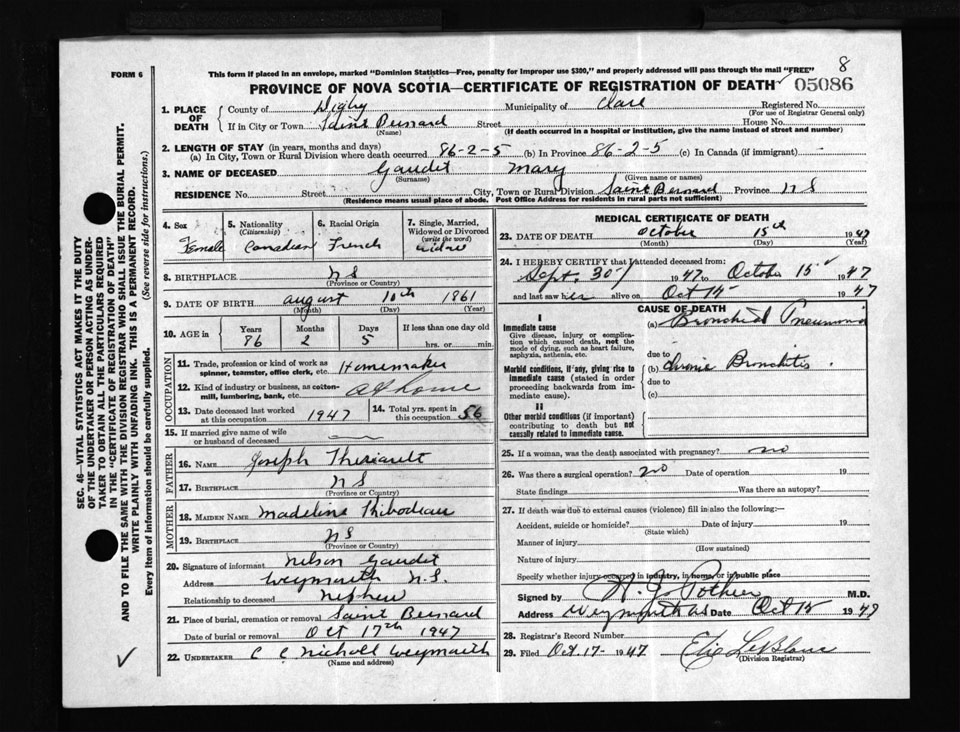 8
FORM 6
This form if placed in an envelope, marked "Dominion Statistics—Free, penalty for improper use $300," and properly addressed will pass through the mail "FREE"
PROVINCE OF NOVA SCOTIA—CERTIFICATE OF REGISTRATION OF DEATH 05086
1. PLACE OF DEATH
County of Digby Municipality of Clare Registered No.
(For use of Registrar General only)
If in City or Town Saint Bernard Street House No.
(Name) (If death occurred in a hospital or institution, give the name instead of street and number)
2. LENGTH OF STAY (in years, months and days)
(a) In City, Town or Rural Division where death occurred 86-2-5 (b) In Province 86-2-5 (c) In Canada (if immigrant)
3. NAME OF DECEASED Gaudet Mary
(Surname) (Given name or names)
RESIDENCE No. Street City, Town or Rural Division Saint Bernard Province N S
(Residence means usual place of abode. Post Office Address for residents in rural parts not sufficient)
4. Sex 5. Nationality (Citizenship) 6. Racial Origin 7. Single, Married, Widowed or Divorced (write the word)
Female Canadian French widow
8. BIRTHPLACE N S
(Province or Country)
9. DATE OF BIRTH August 10th 1861
(Month) (Day) (Year)
10. AGE in Years Months Days If less than one day old
86 2 5 hrs. or min.
OCCUPATION
11. Trade, profession or kind of work as spinner, teamster, office clerk, etc. Homemaker
12. Kind of industry or business, as cotton-mill, lumbering, bank, etc. At home
13. Date deceased last worked at this occupation 1947 14. Total yrs. spent in this occupation 56
15. If married give name of wife or husband of deceased
FATHER
16. NAME Joseph Theriault
17. BIRTHPLACE N S
(Province or Country)
MOTHER
18. MAIDEN NAME Madeline Thibodeau
19. BIRTHPLACE N S
(Province or Country)
20. Signature of informant Nelson Gaudet
Address Weymouth N.S.
Relationship to deceased Nephew
21. Place of burial, cremation or removal Saint Bernard
Date of burial or removal Oct 17th 1947
22. UNDERTAKER C C Nicholl Weymouth
(Name and address)
MEDICAL CERTIFICATE OF DEATH
23. DATE OF DEATH October 15th 1947
(Month) (Day) (Year)
24. I HEREBY CERTIFY that I attended deceased from:
Sept. 30 1947 to October 15 1947
and last saw her alive on Oct 15 1947
CAUSE OF DEATH
I
Immediate cause
Give disease, injury or complication which caused death, not the mode of dying, such as heart failure, asphyxia, asthenia, etc.
(a) Bronchial Pneumonia
due to
Morbid conditions, if any, giving rise to immediate cause (stated in order proceeding backwards from immediate cause).
(b) Chronic Bronchitis
due to
(c)
II
Other morbid conditions (if important) contributing to death but not causally related to immediate cause.
25. If a woman, was the death associated with pregnancy? no
26. Was there a surgical operation? no Date of operation 19
State findings Was there an autopsy?
27. If death was due to external causes (violence) fill in also the following:—
Accident, suicide or homicide? Date of injury 19
(State which)
Manner of injury
(How sustained)
Nature of injury
Specify whether injury occurred in industry, in home, or in public place
Signed by H. J. Pothier M.D.
Address Weymouth NS Date Oct 15 1947
28. Registrar's Record Number
29. Filed Oct. 17- 1947 Elie LeBlanc
(Division Registrar)
SEC. 46—VITAL STATISTICS ACT MAKES IT THE DUTY
OF THE UNDERTAKER OR PERSON ACTING AS UNDER-
TAKER TO OBTAIN ALL THE PARTICULARS REQUIRED
IN THE "CERTIFICATE OF REGISTRATION OF DEATH"
AND TO FILE THE SAME WITH THE DIVISION REGISTRAR WHO SHALL ISSUE THE BURIAL PERMIT.
WRITE PLAINLY WITH UNFADING INK. THIS IS A PERMANENT RECORD.
Every item of information should be carefully supplied. (See reverse side for instructions.)